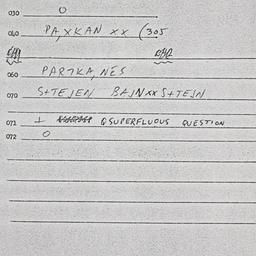 030 O
040 PA,XKAN XX (305
060 PARTKA,NES
070 S+TEJEN BAJNXXS+TEJN
071 1 QSUPERFLUOUS QUESTION
072 O